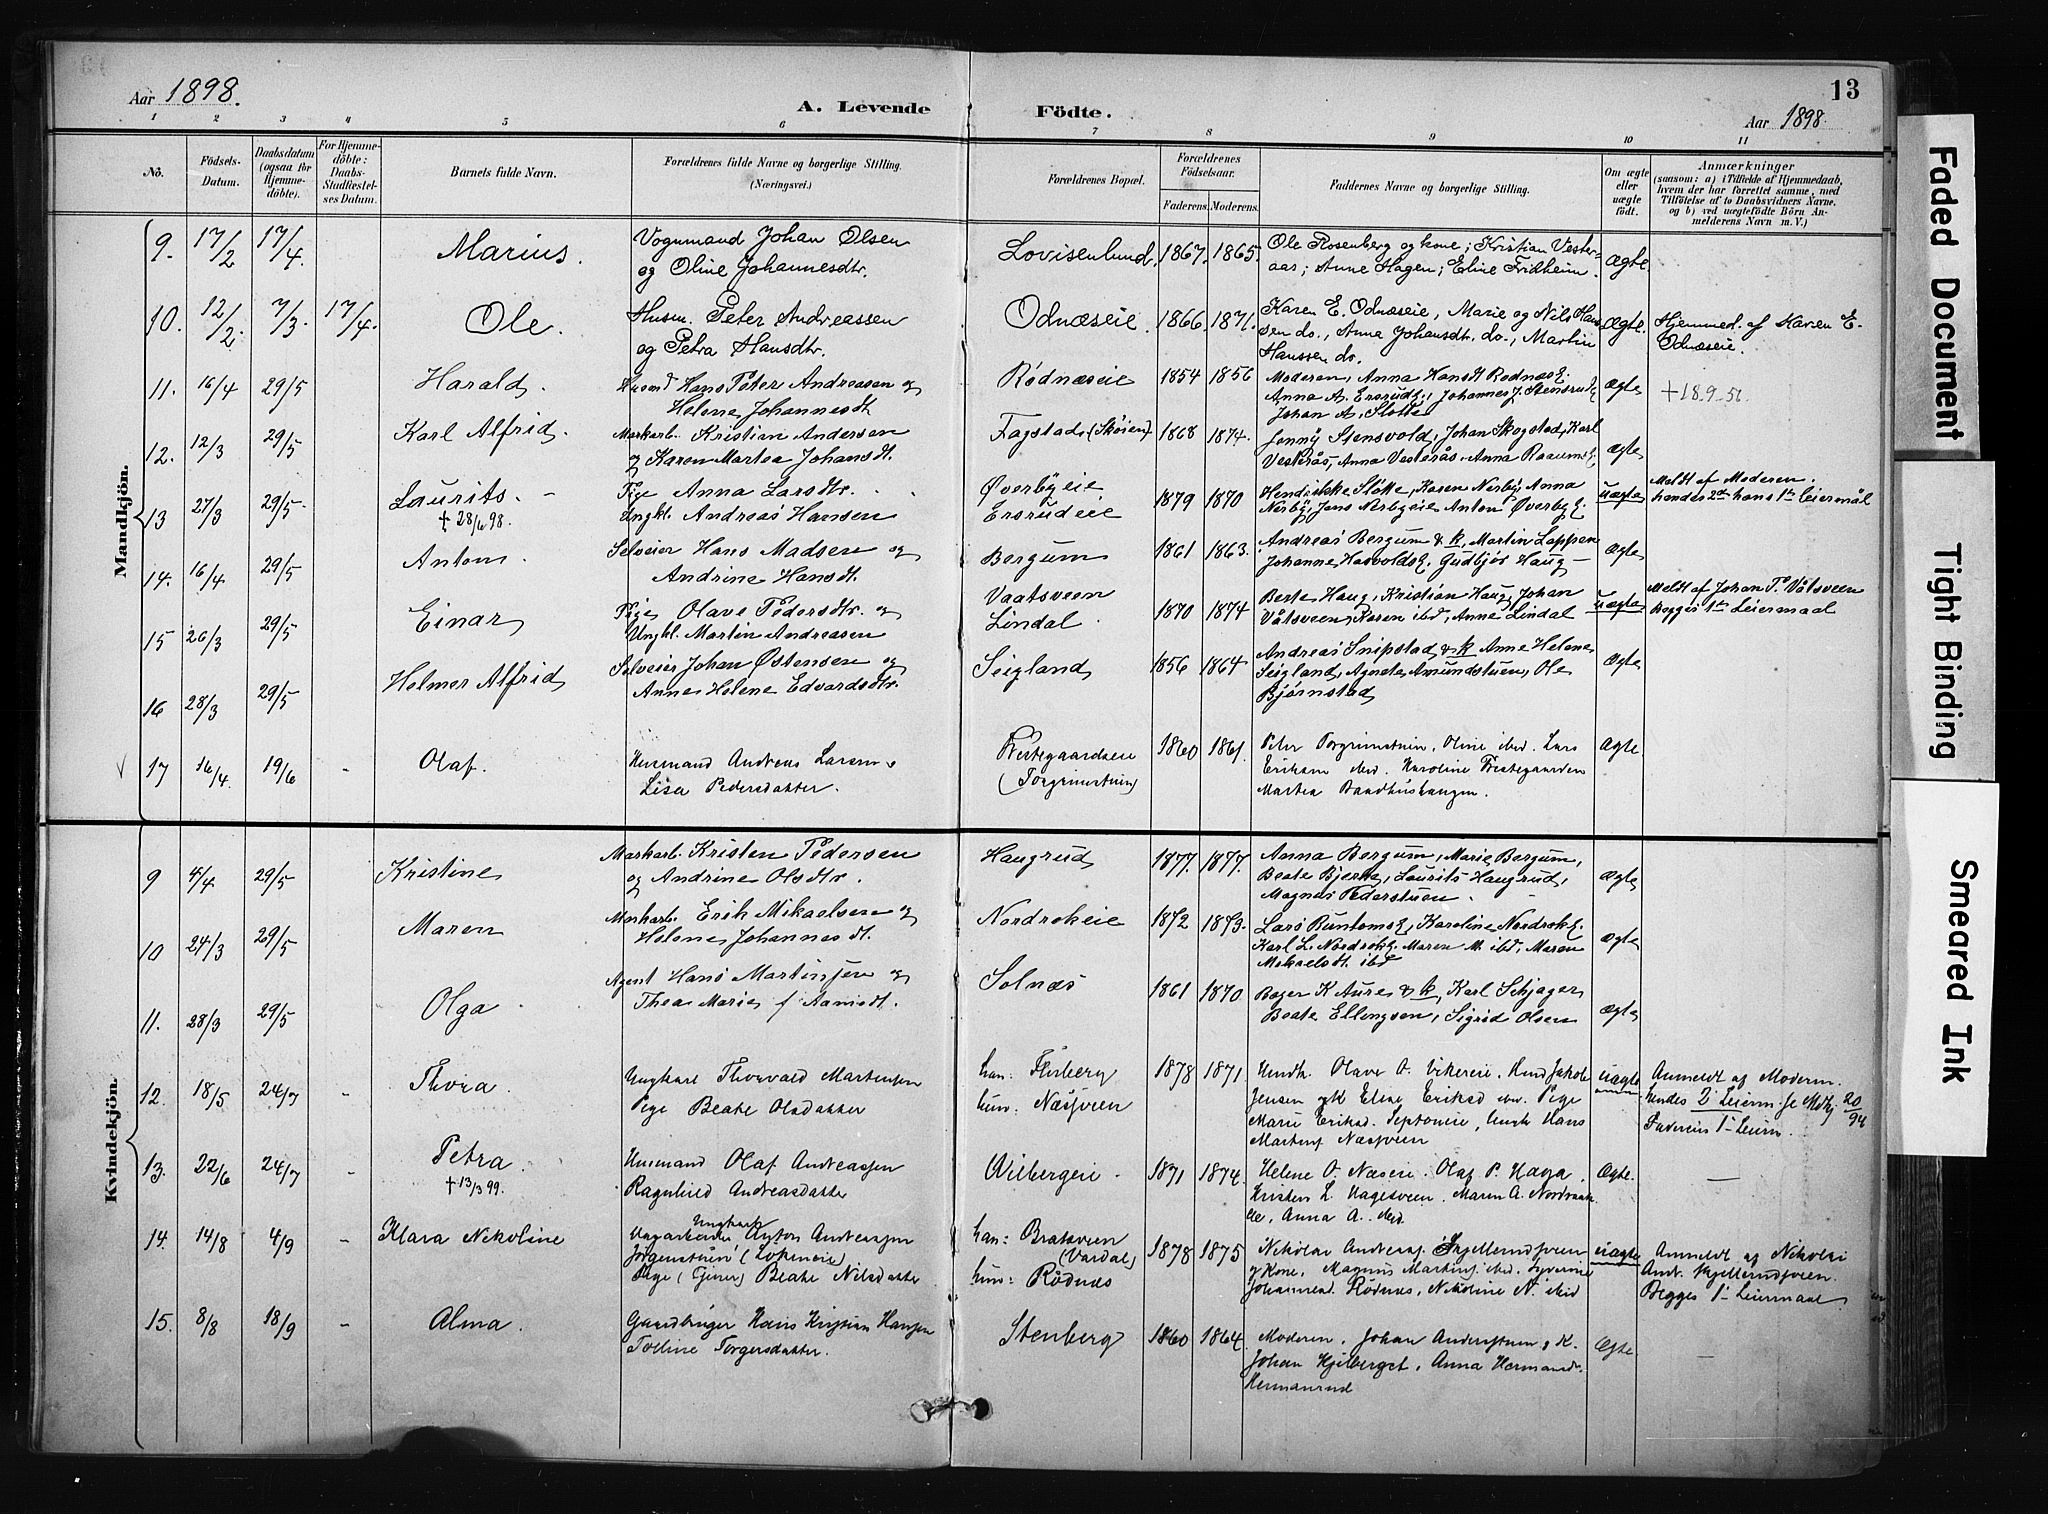 Aar 1898. A. Levende Födte. Aar 1898. 13
1 2 3 4 5 6 7 8 9 10 11
No. Födsels-Datum. Daabsdatum (ogsaa for Hjemmedöbte). For Hjemmedöbte: Daabs-Stadfæstelses Datum. Barnets fulde Navn. Forældrenes fulde Navne og borgerlige Stilling. (Næringsvei.) Forældrenes Bopæl. Forældrenes Födselsaar. Faderens. Moderens. Faddernes Navne og borgerlige Stilling. Om ægte eller uægte födt. Anmærkninger (saasom: a) i Tilfælde af Hjemmedaab, hvem der har forrettet samme, med Tilföielse af to Daabsvidners Navne, og b) ved uægtefödte Börn Anmelderens Navn m. V.)
Mandkjön.
9. 17/2 17/4. Marius. Vognmand Johan Olsen Lovisenlund. 1867. 1865. Ole Rosenberg og kone; Kristian Vester- Ægte.
og Oline Johannesdtr. aas; Anne Hagen; Eline Fridheim.
10. 12/2. 7/3. 17/4. Ole. Husm. Peter Andreassen Odnæseie. 1866. 1871. Karen E. Odnæseie, Marie og Nils Han- Ægte. Hjemmed. af Karen E.
og Petra Hansdtr. sen do., Anna Johansdt. do., Martin Odnæseie.
Hanssen do.
11. 16/4 29/5 Harald. Husmd Hans Peter Andreasen og Rødnæseie 1854 1856 Moderen, Anna Hansdt RødnæsE. Ægte +18.9-56
Helene Johannesdt Anna A. ErsrudE., Johannes J. StensrudE
Johan A. Slotte
12. 12/3 29/5 Karl Alfrid. Markarb. Kristian Andersen Fagstad (Skøien) 1868 1874. Jenny Stensvold, Johan Skogstad, Karl Ægte
og Karen Martea Johansdt. Vesterås, Anna Vesterås, Anna
13 27/3 29/5 Laurits. Pige Anna Larsdtr. Øverbyeie 1879 1870 Hendrikke Slotte, Karen Nerby, Anna uægte Meldt af Moderen.
+ 28/6 98. Ungkl. Andreas Hansen Ersrudeie Nerby, Jens Nerbyeie Anton ØverbyE. hendes 2det hans 1ste Leiermål
14. 16/4 29/5 Anton. Selveier Hans Madsen og Bergum 1861 1863. Andreas Bergum & k, Martin Lappen Ægte
Andrine Hansdt. Johanne HasvoldsE, Gudbjør Haug
15 26/3 29/5 Einar Pige Olave Pedersdtr. og Vaatsveen 1870 1874 Berte Haug, Kristian Haug, Johan uægte Meldt af Johan P. Våtsveen
Ungkl. Martin Andreasen Lindal. Våtsveen, Karen ibd, Anne Lindal Begges 1ste Leiermaal
16 28/3 29/5 Helmer Alfrid Selveier Johan Østensen og Seigland 1856 1864 Andreas Snipstad & k Anne Helene Ægte
Anne Helene Edvardsdtr. Seigland, Agnete Amundstuen, Ole
Bjørnstad
17 16/4. 19/6 - Olaf. Husmand Andreas Larsen Præstegaardseie 1860 1861. Peter Torgrimstuen, Oline ibid. Lars Ægte
Lisa Pedersdatter. (Torgrimstuen) Eriksen ibid. Karoline Præstegaarden
Martea Bandhushaugen.
Kvindekjön.
9 4/4 29/5 Kristine Markarb. Kristen Pedersen Haugrud 1877. 1877. Anna Bergum, Marie Bergum, Ægte
og Andrine Olsdtr. Beate Bjerke, Laurits Haugrud,
Magnus Pederstuen.
10 24/3 29/5 Maren Markarb. Erik Mikaelsen og Nordrokeie 1872 1873. Lars RuntomsE, Karoline NordrokE. Ægte
Helene Johannesdt. Karl L. NordrokE. Maren M. ibd, Maren
Mikaelsdt. ibd
11. 28/3 29/5 Olga Agent Hans Martinsen og Solnæs 1861 1870 Bager K Aure & k, Karl Schjager Ægte
Thea Marie f. Beate Ellingsen, Sigrid Olsen
12. 18/5 24/7 - Thora. Ungkarl Thorvald Martinsen han: Finberg 1878 1871 Husmk. Olave O. Vikereie, uægte Anmeldt af Moderen.
Pige Beate Olsdatter hun: Næsveen Jensen og K Eline Eriksd ibid. Pige Hendes 2 Leierm. se Mdkj. 20/94
Marie Eriksd. Ungk Hans Faderens 1ste Leierm.
Martins Næsveen
13. 22/6 24/7 - Petra. Husmand Olaf Andreassen Vilbergeie. 1871 1874. Helene O. Næseie. Olaf P. Haga. Ægte. —
+ 13/3 99. Ragnhild Andreasdatter Kristen L. Hagesveen. Maren A.
Anna A. ibid.
14. 14/8 4/9 - Klara Nikoline Ungkarl Anton Andreassen han: Bratsveen (Vardal) 1878 1875 Nikolai Andreas. Skjellerudsveen uægte Anmeldt af Nikolai
Jörgenstuen (Lökeneie) hun: Rødnæs og Kone, Magnus Martins. ibid, Andr. Skjellerudsveen.
Pige (Tjener) Beate Nilsdatter Rödnæs, Nikoline N. ibid Begges 1ste Leiermaal.
15. 8/8 18/9 - Alma. Gaardbruger Hans Kristian Hansen Stenberg 1860 1864. Moderen, Johan Anderstuen, K. Ægte —
Tolline Torgersdatter. Johan Kjilberget, Anna Hermansd.
Hermanrud
Faded Document
Tight Binding
Smeared Ink